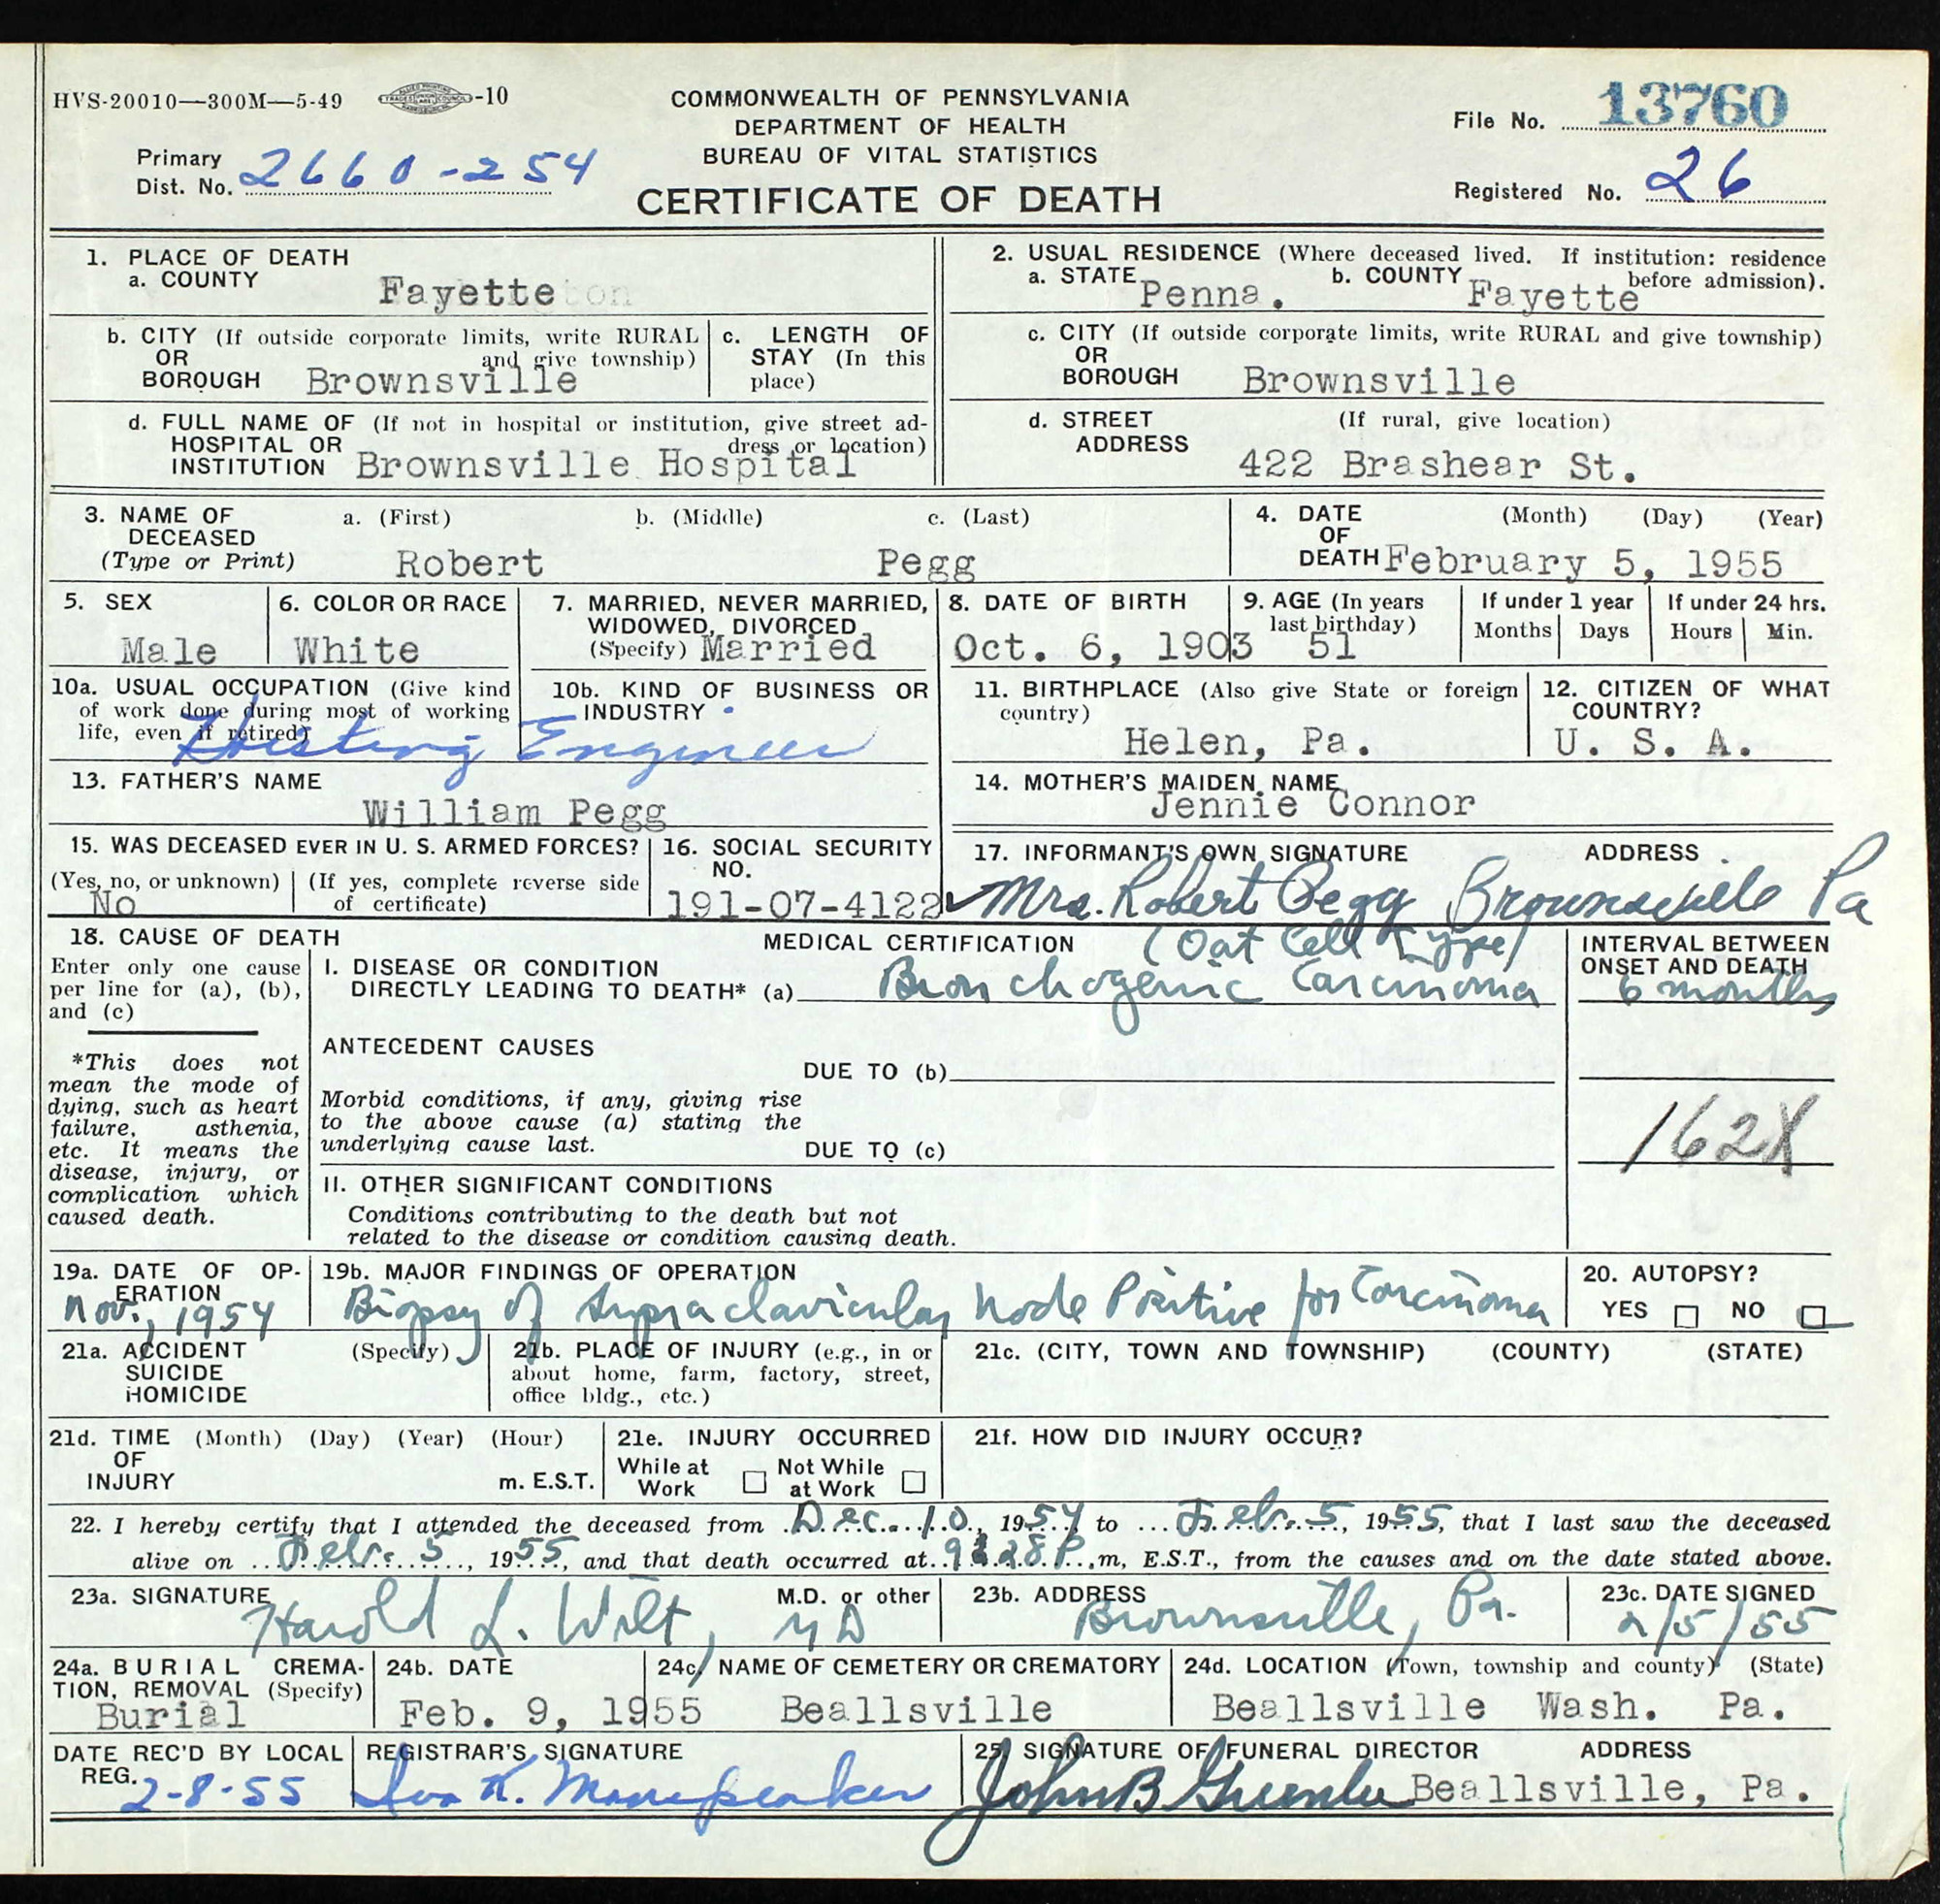 HVS-20010—300M—5-49 -10
COMMONWEALTH OF PENNSYLVANIA
DEPARTMENT OF HEALTH
BUREAU OF VITAL STATISTICS
CERTIFICATE OF DEATH
Primary Dist. No. 2660-254
File No. 13760
Registered No. 26
1. PLACE OF DEATH
a. COUNTY Fayette
b. CITY (If outside corporate limits, write RURAL
OR and give township)
BOROUGH Brownsville
c. LENGTH OF
STAY (In this
place)
d. FULL NAME OF (If not in hospital or institution, give street ad-
HOSPITAL OR dress or location)
INSTITUTION Brownsville Hospital
2. USUAL RESIDENCE (Where deceased lived. If institution: residence
before admission).
a. STATE Penna. b. COUNTY Fayette
c. CITY (If outside corporate limits, write RURAL and give township)
OR
BOROUGH Brownsville
d. STREET (If rural, give location)
ADDRESS 422 Brashear St.
3. NAME OF a. (First) b. (Middle) c. (Last)
DECEASED
(Type or Print) Robert Pegg
4. DATE (Month) (Day) (Year)
OF
DEATH February 5, 1955
5. SEX
Male
6. COLOR OR RACE
White
7. MARRIED, NEVER MARRIED,
WIDOWED, DIVORCED
(Specify) Married
8. DATE OF BIRTH
Oct. 6, 1903
9. AGE (In years
last birthday)
51
If under 1 year
Months Days
If under 24 hrs.
Hours Min.
10a. USUAL OCCUPATION (Give kind
of work done during most of working
life, even if retired)
10b. KIND OF BUSINESS OR
INDUSTRY
Hoisting Engineer
11. BIRTHPLACE (Also give State or foreign
country)
Helen, Pa.
12. CITIZEN OF WHAT
COUNTRY?
U. S. A.
13. FATHER'S NAME
William Pegg
14. MOTHER'S MAIDEN NAME
Jennie Connor
15. WAS DECEASED EVER IN U. S. ARMED FORCES?
(Yes, no, or unknown) (If yes, complete reverse side
No of certificate)
16. SOCIAL SECURITY
NO.
191-07-4122
17. INFORMANT'S OWN SIGNATURE ADDRESS
Mrs. Robert Pegg Brownsville Pa
18. CAUSE OF DEATH
Enter only one cause
per line for (a), (b),
and (c)
*This does not
mean the mode of
dying, such as heart
failure, asthenia,
etc. It means the
disease, injury, or
complication which
caused death.
MEDICAL CERTIFICATION (Oat Cell Type)
I. DISEASE OR CONDITION
DIRECTLY LEADING TO DEATH* (a) Bronchogenic Carcinoma
ANTECEDENT CAUSES
DUE TO (b)
Morbid conditions, if any, giving rise
to the above cause (a) stating the
underlying cause last.
DUE TO (c)
II. OTHER SIGNIFICANT CONDITIONS
Conditions contributing to the death but not
related to the disease or condition causing death.
INTERVAL BETWEEN
ONSET AND DEATH
6 months
162X
19a. DATE OF OP-
ERATION
Nov., 1954
19b. MAJOR FINDINGS OF OPERATION
Biopsy of Supraclavicular Node Positive for Carcinoma
20. AUTOPSY?
YES NO
21a. ACCIDENT (Specify)
SUICIDE
HOMICIDE
21b. PLACE OF INJURY (e.g., in or
about home, farm, factory, street,
office bldg., etc.)
21c. (CITY, TOWN AND TOWNSHIP) (COUNTY) (STATE)
21d. TIME (Month) (Day) (Year) (Hour)
OF
INJURY m. E.S.T.
21e. INJURY OCCURRED
While at Work Not While at Work
21f. HOW DID INJURY OCCUR?
22. I hereby certify that I attended the deceased from Dec. 10, 1954 to Feb. 5, 1955, that I last saw the deceased
alive on Feb. 5, 1955, and that death occurred at 9:28 P.m, E.S.T., from the causes and on the date stated above.
23a. SIGNATURE M.D. or other
Harold L. Wilt, MD
23b. ADDRESS
Brownsville, Pa.
23c. DATE SIGNED
2/5/55
24a. BURIAL CREMA-
TION, REMOVAL (Specify)
Burial
24b. DATE
Feb. 9, 1955
24c. NAME OF CEMETERY OR CREMATORY
Beallsville
24d. LOCATION (Town, township and county) (State)
Beallsville Wash. Pa.
DATE REC'D BY LOCAL
REG. 2-8-55
REGISTRAR'S SIGNATURE
25. SIGNATURE OF FUNERAL DIRECTOR ADDRESS
John B Greenlee Beallsville, Pa.